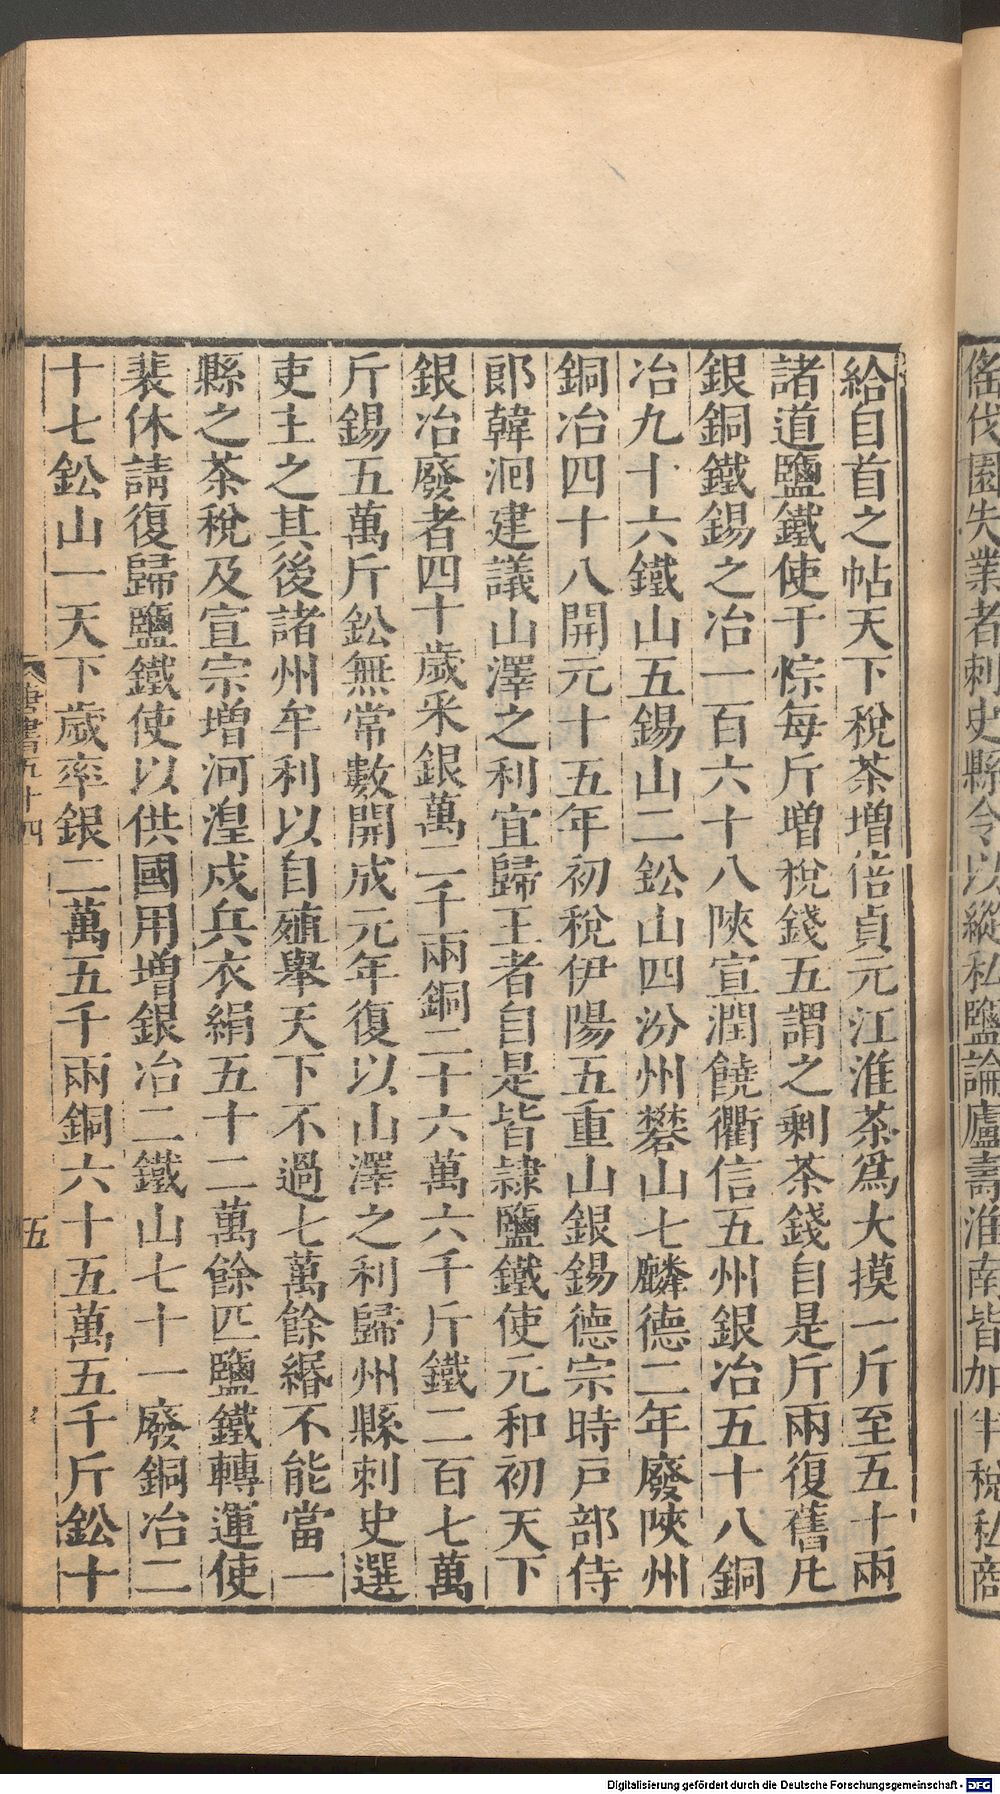 傜伐園失業者刺史縣令以縱私鹽論廬壽淮南皆加半稅私商
給自首之帖天下稅茶增倍貞元江淮茶爲大摸一斤至五十兩
諸道鹽鐵使于悰每斤增稅錢五謂之剩茶錢自是斤兩復舊凡
銀銅鐵錫之冶一百六十八陝宣潤饒衢信五州銀冶五十八銅
冶九十六鐵山五錫山二鈆山四汾州礬山七麟德二年廢陝州
銅冶四十八開元十五年初稅伊陽五重山銀錫德宗時戸部侍
郎韓洄建議山澤之利宜歸王者自是皆隷鹽鐵使元和初天下
銀冶廢者四十歲采銀萬二千兩銅二十六萬六千斤鐵二百七萬
斤錫五萬斤鈆無常數開成元年復以山澤之利歸州縣刺史選
吏主之其後諸州牟利以自殖舉天下不過七萬餘緡不能當一
縣之茶稅及宣宗增河湟戍兵衣絹五十二萬餘匹鹽鐵轉運使
裴休請復歸鹽鐵使以供國用增銀冶二鐵山七十一廢銅冶二
十七鈆山一天下歲率銀二萬五千兩銅六十五萬五千斤鈆十
唐書五十四
五
Digitalisierung gefördert durch die Deutsche Forschungsgemeinschaft - DFG